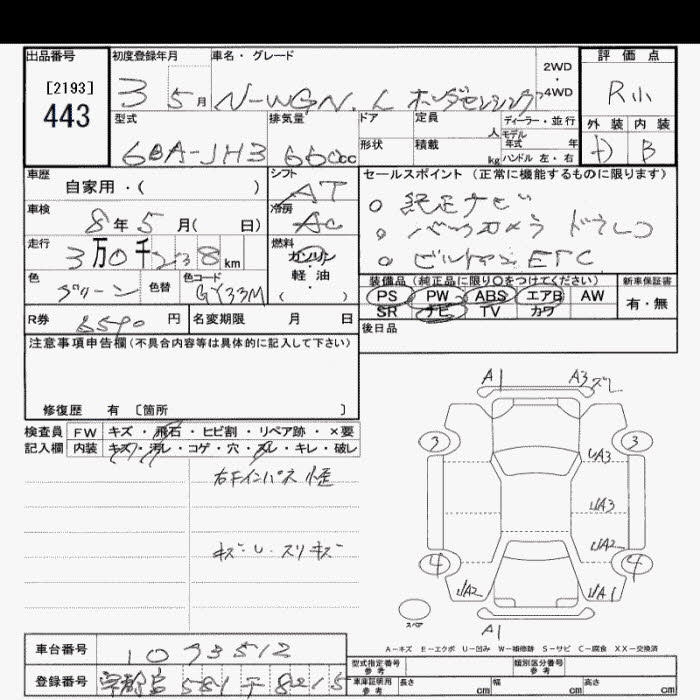 出品番号 初度登録年月 車名・グレード 評価点
[2193] 443 3 5月 N-WGN. L ホンダセンシング 2WD・4WD R小
型式 排気量 ドア 定員 人 ディーラー・並行 外装 内装
6BA-JH3 660cc 形状 積載 kg モデル年式 年 ハンドル 左・右 B
車歴 シフト セールスポイント (正常に機能するものに限ります)
自家用・( ) AT 純正ナビ
車検 冷房 バックカメラ ドラレコ
8年5月( 日) AC ビルトインETC
走行 燃料
3万0千238km ガソリン 軽・油 ( )
装備品(純正品に限り〇をつけてください) 新車保証書
色 色替 色コード PS PW ABS エアB AW 有・無
グリーン GY33M SR ナビ TV カワ
R券 6590円 名変期限 月 日 後日品
注意事項申告欄(不具合内容等は具体的に記入して下さい)
修復歴 有 [箇所 ]
検査員 FW キズ・飛石・ヒビ割・リペア跡・×要
記入欄 内装 キズ・汚レ・コゲ・穴・スレ・キレ・破レ
右Fインパネ 怪
キズ・U・スリキズ
A1 A3 ズレ
3 3
UA3
UA3
UA2
4 4
UA2 UA1
スペア
A1
A-キズ E-エクボ U-凹み W-補修跡 S-サビ C-腐食 XX-交換済
車台番号 1093512
型式指定番号 参考 類別区分番号 参考
登録番号 宇都宮 581 8215
車庫証明用 参考 長さ cm 幅 cm 高さ cm